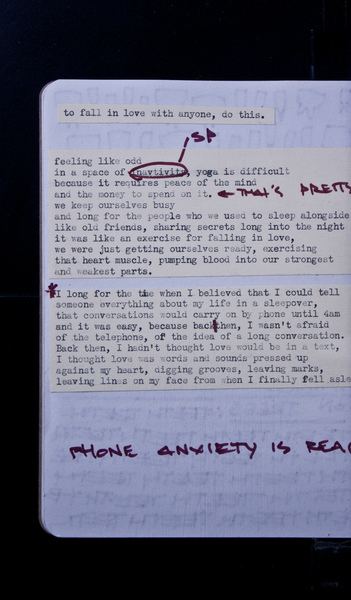 to fall in love with anyone, do this.
SP
feeling like odd
in a space of inavtivity, yoga is difficult
because it requires peace of the mind
and the money to spend on it. ← THAT'S PRETTY
we keep ourselves busy
and long for the people who we used to sleep alongside
like old friends, sharing secrets long into the night
it was like an exercise for falling in love,
we were just getting ourselves ready, exercising
that heart muscle, pumping blood into our strongest
and weakest parts.
* I long for the time when I believed that I could tell
someone everything about my life in a sleepover,
that conversations would carry on by phone until 4am
and it was easy, because back then, I wasn't afraid
of the telephone, of the idea of a long conversation.
Back then, I hadn't thought love would be in a text,
I thought love was words and sounds pressed up
against my heart, digging grooves, leaving marks,
leaving lines on my face from when I finally fell asle
PHONE ANXIETY IS REA